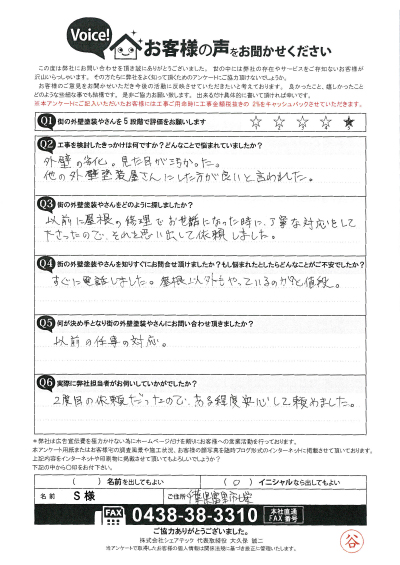 Voice!
お客様の声をお聞かせください
この度は弊社にお問い合わせを頂き誠にありがとうございました。世の中には弊社の存在やサービスをご存知ないお客様が
沢山いらっしゃいます。その方たちに弊社をよく知って頂くためのアンケートにご協力頂けないでしょうか。
お客様のご意見をお聞かせいただき今後の活動に役立てていきたいと考えております。良かったこと、嬉しかったこと
どのような些細な事でも結構です。是非ご協力お願い致します。出来るだけ具体的に書いて頂ければ幸いです。
※本アンケートにご記入いただいたお客様には工事ご用命時に工事金額税抜きの 2%をキャッシュバックさせていただきます。
Q1 街の外壁塗装やさんを5段階で評価をお願いします ☆ ☆ ☆ ☆ ★
Q2 工事を検討したきっかけは何ですか？どんなことで悩まれていましたか？
外壁の劣化。見た目がきたなかった。
他の外壁塗装屋さんにした方が良いと言われました。
Q3 街の外壁塗装やさんをどのように探しましたか？
以前に屋根の修理でお世話になった時に、丁寧な対応をして
下さったので、それを思い出して依頼しました。
Q4 街の外壁塗装やさんを知りすぐにお問合せ頂けましたか？もし悩まれたとしたらどんなことがご不安でしたか？
すぐに電話しました。屋根以外もやっているのか？と
Q5 何が決め手となり街の外壁塗装やさんにお問い合わせ頂きましたか？
以前の仕事の対応。
Q6 実際に弊社担当者がお伺いしていかがでしたか？
2度目の依頼だったので、ある程度安心して頼めました。
※弊社は広告宣伝費を極力かけない為にホームページだけを頼りにお客様への営業活動を行っております。
本アンケート用紙またはお客様宅の調査風景や施工状況、お客様の顔写真を随時ブログ形式のインターネットに掲載させて頂いております。
上記内容をインターネットや印刷物に掲載させて頂いてもよろしいでしょうか？
下記の中から〇印をお付下さい。
( )名前を出してもよい (○)イニシャルなら出してもよい
名前 S 様 ご住所
FAX 0438-38-3310 本社直通 FAX番号
ご協力ありがとうございました。
株式会社シェアテック 代表取締役 大久保 誠二
※アンケートで取得したお客様の個人情報は関係法規に基づき厳正に管理いたします。
谷